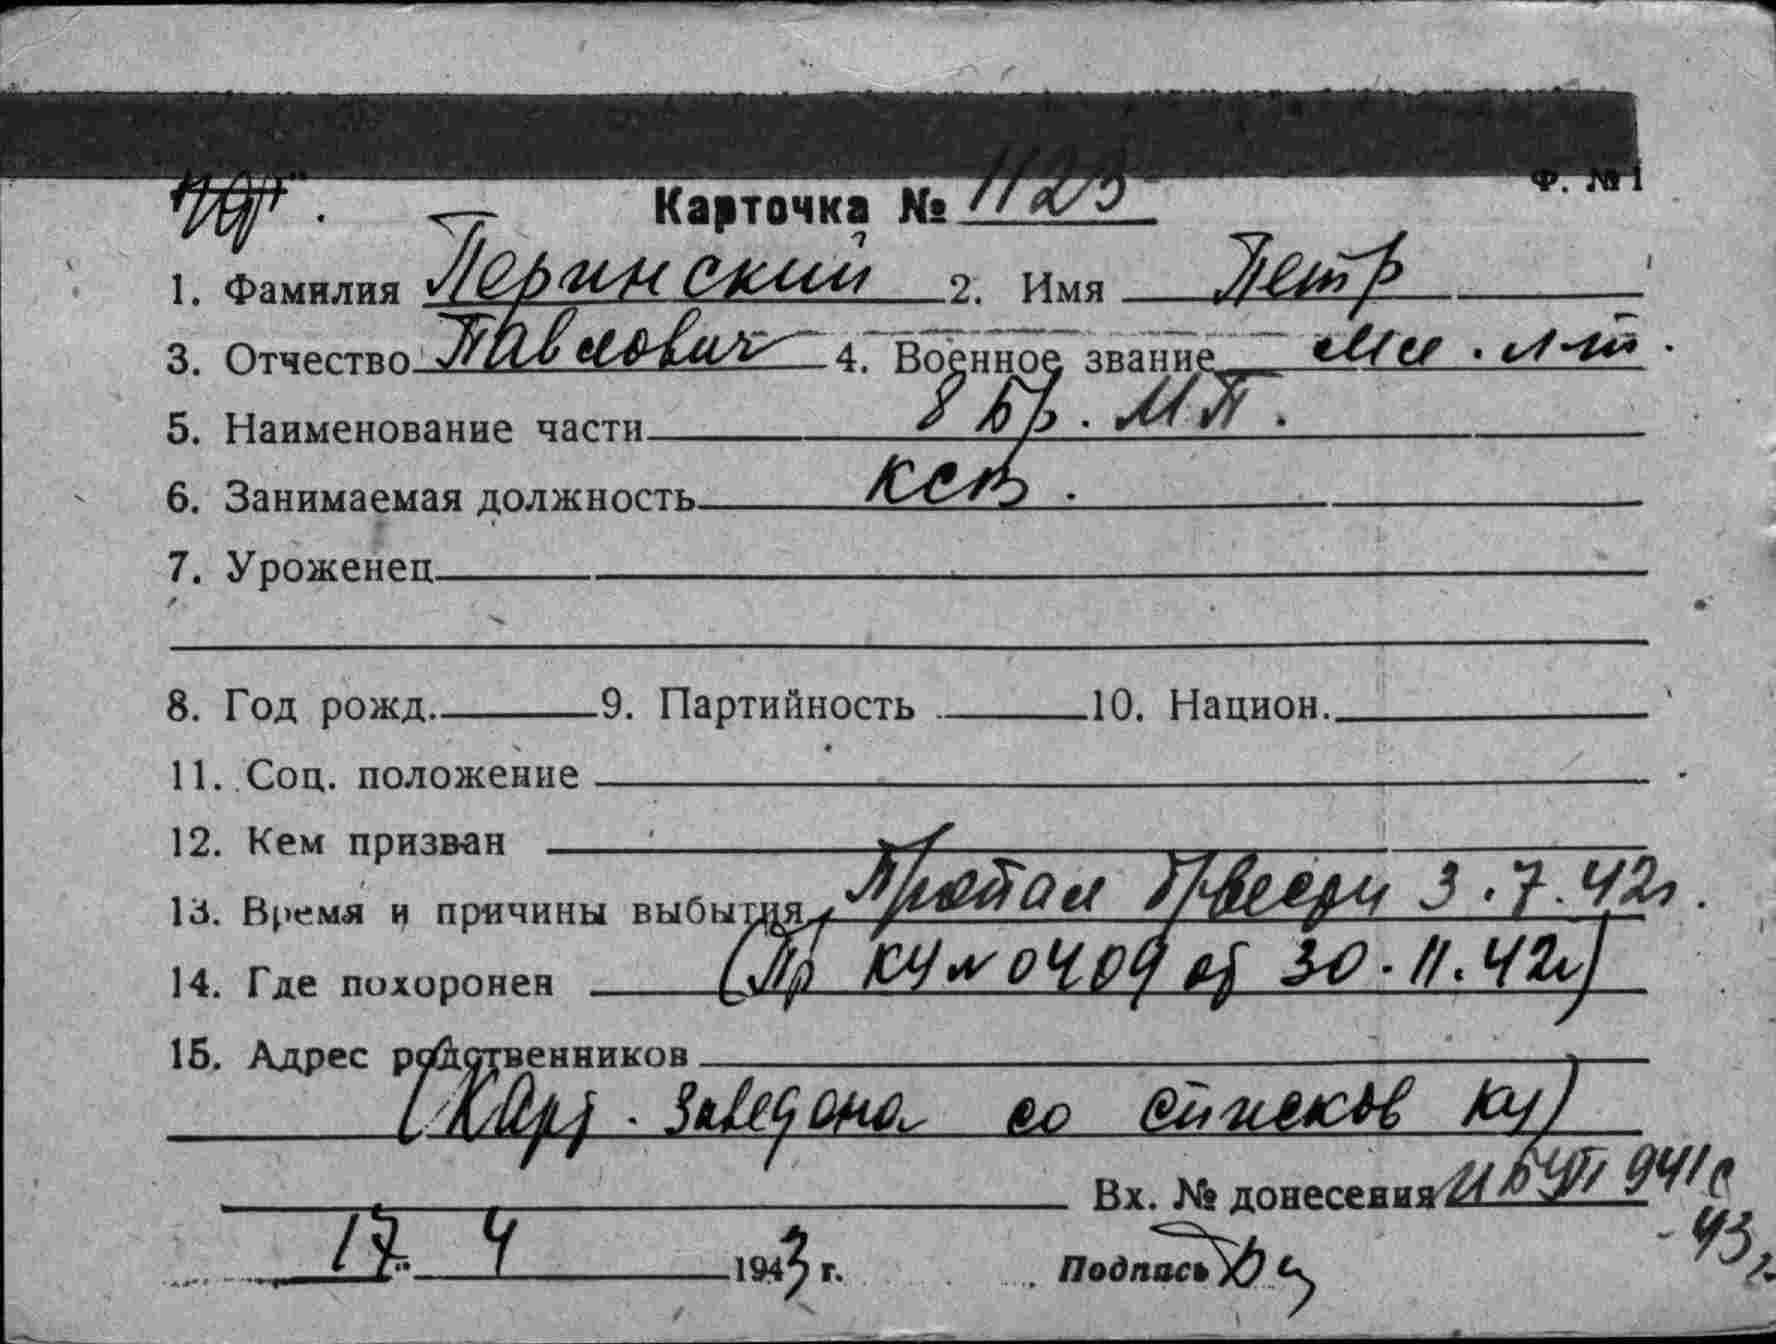 Ф. № 1
Карточка № 1123
1. Фамилия Перинский 2. Имя Петр
3. Отчество Павлович 4. Военное звание Мл. л-т.
5. Наименование части 8 Бр. МП.
6. Занимаемая должность
7. Уроженец
8. Год рожд. 9. Партийность 10. Национ.
11. Соц. положение
12. Кем призван
13. Время и причины выбытия Пропал 3.7.42г.
14. Где похоронен (Пр КУ № 0409 от 30.11.42г)
15. Адрес родственников
(Карт. заведена со списков КУ)
Вх. № донесения 941с
-43г.
17. 4 1943 г. Подпись